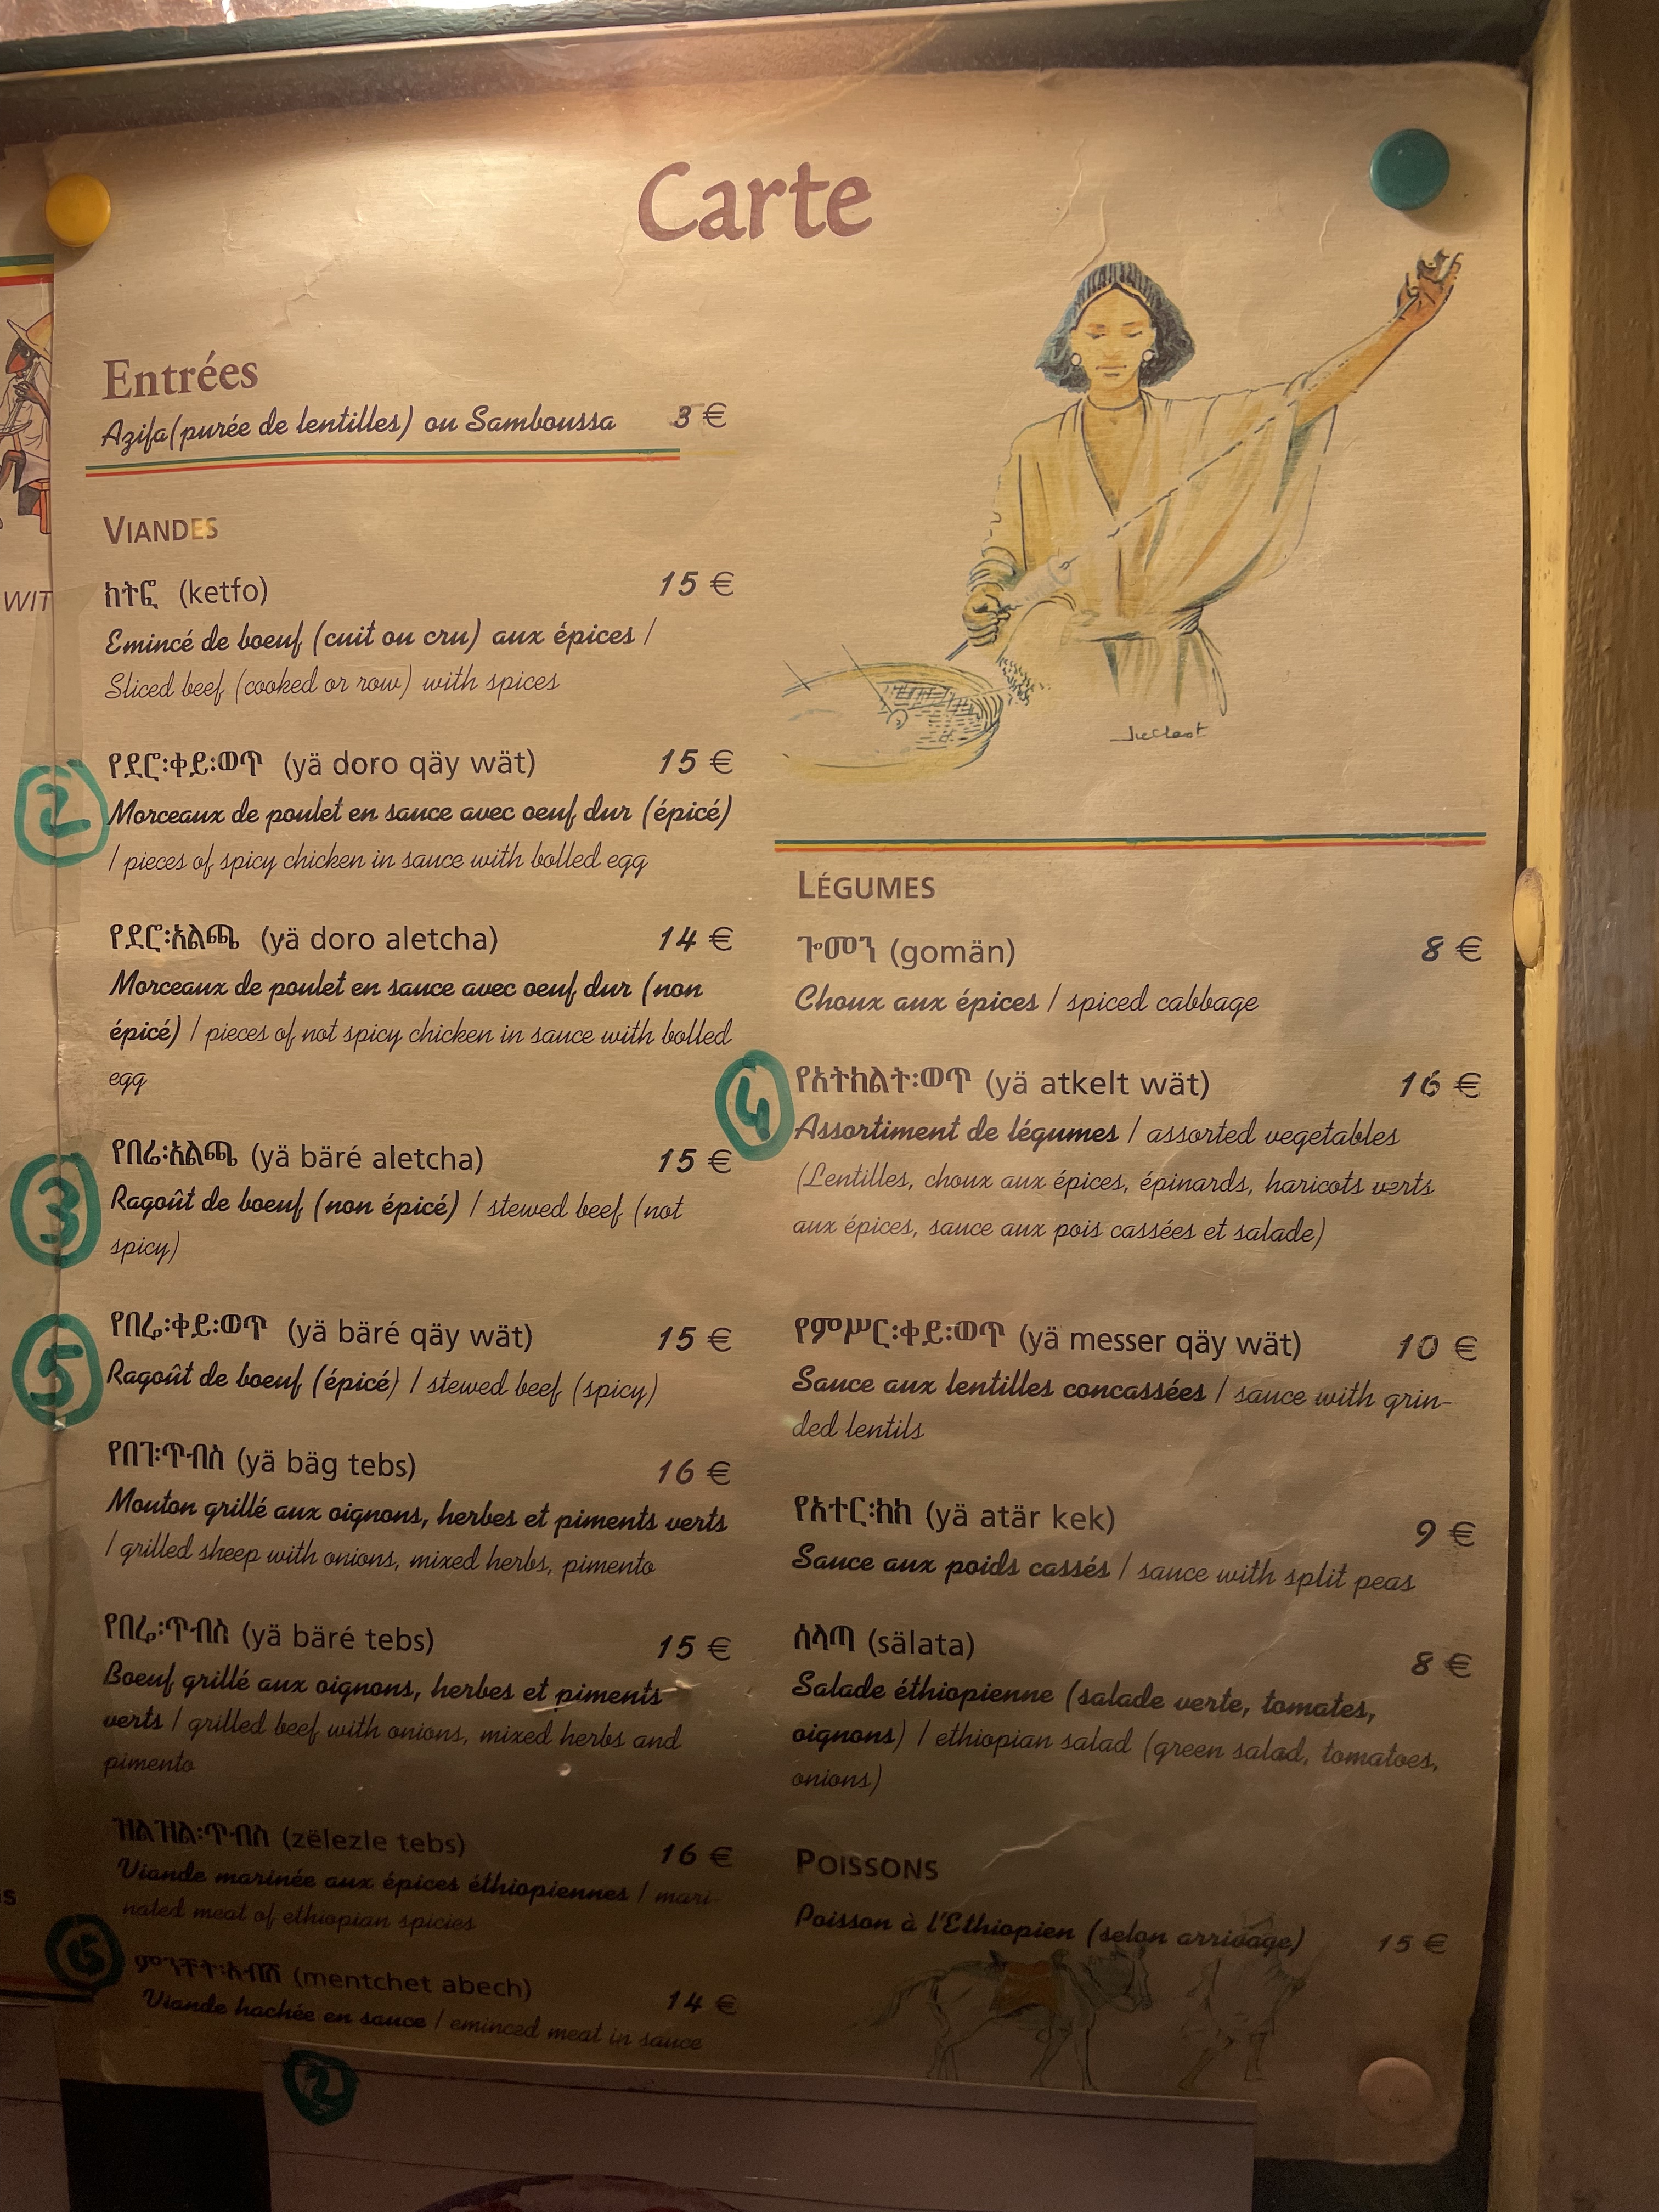 Carte
Entrées
Azifa(purée de lentilles) ou Samboussa 3 €
VIANDES
ክትፎ (ketfo) 15 €
Emincé de boeuf (cuit ou cru) aux épices /
Sliced beef (cooked or row) with spices
2
የደሮ፡ቀይ፡ወጥ (yä doro qäy wät) 15 €
Morceaux de poulet en sauce avec oeuf dur (épicé)
/ pieces of spicy chicken in sauce with bolled egg
የደሮ፡አልጫ (yä doro aletcha) 14 €
Morceaux de poulet en sauce avec oeuf dur (non
épicé) / pieces of not spicy chicken in sauce with bolled
egg
3
የበሬ፡አልጫ (yä bäré aletcha) 15 €
Ragoût de boeuf (non épicé) / stewed beef (not
spicy)
5
የበሬ፡ቀይ፡ወጥ (yä bäré qäy wät) 15 €
Ragoût de boeuf (épicé) / stewed beef (spicy)
የበገ፡ጥብስ (yä bäg tebs) 16 €
Mouton grillé aux oignons, herbes et piments verts
/ grilled sheep with onions, mixed herbs, pimento
የበሬ፡ጥብስ (yä bäré tebs) 15 €
Boeuf grillé aux oignons, herbes et piments
verts / grilled beef with onions, mixed herbs and
pimento
ዝልዝል፡ጥብስ (zëlezle tebs) 16 €
Viande marinée aux épices éthiopiennes / mari-
nated meat of ethiopian spicies
ምንቸት፡አብሽ (mentchet abech) 14 €
Viande hachée en sauce / eminced meat in sauce
2
LÉGUMES
ጐመን (gomän) 8 €
Choux aux épices / spiced cabbage
4
የአትክልት፡ወጥ (yä atkelt wät) 16 €
Assortiment de légumes / assorted vegetables
(Lentilles, choux aux épices, épinards, haricots verts
aux épices, sauce aux pois cassées et salade)
የምሥር፡ቀይ፡ወጥ (yä messer qäy wät) 10 €
Sauce aux lentilles concassées / sauce with grin-
ded lentils
የአተር፡ክክ (yä atär kek) 9 €
Sauce aux poids cassés / sauce with split peas
ሰላጣ (sälata) 8 €
Salade éthiopienne (salade verte, tomates,
oignons) / ethiopian salad (green salad, tomatoes,
onions)
POISSONS
Poisson à l'Ethiopien (selon arrivage) 15 €
WIT